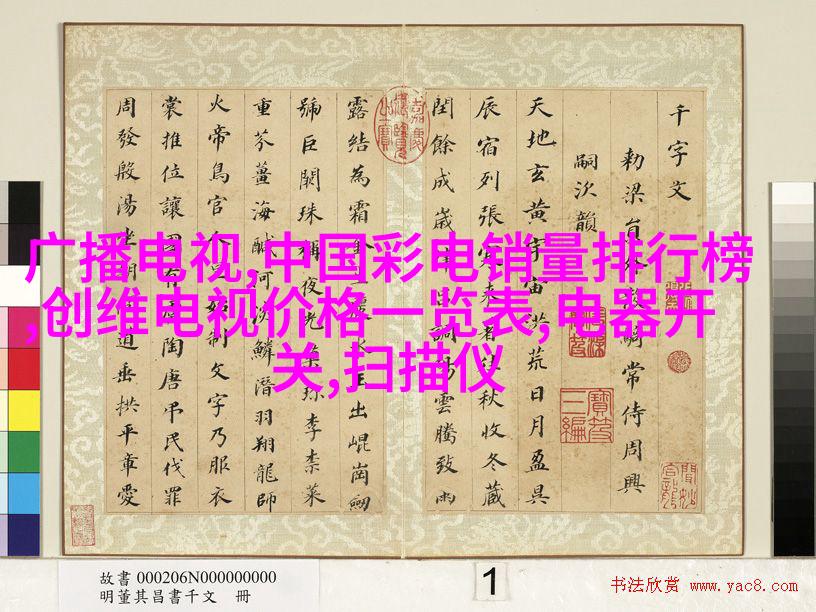 千字文
勑梁員外散騎常侍周興
嗣次韻
天地玄黃宇宙洪荒日月盈昃
辰宿列張寒來暑往秋收冬藏
閏餘成歲調陽雲騰致雨
露結為霜金生麗水玉出崐崗劒
號巨闕珠稱夜光菓珍李柰菜
重芥薑海鹹河淡鱗潛羽翔龍師
火帝鳥官人皇始制文字乃服衣
裳推位讓國有虞陶唐弔民伐罪
周發殷湯坐朝問道垂拱平章愛
广播电视,中国彩电销量排行榜
,创维电视价格一览表,电器开
关,扫描仪
故書 000206N000000000
明董其昌書千文 冊
1
书法欣赏 www.yac8.com